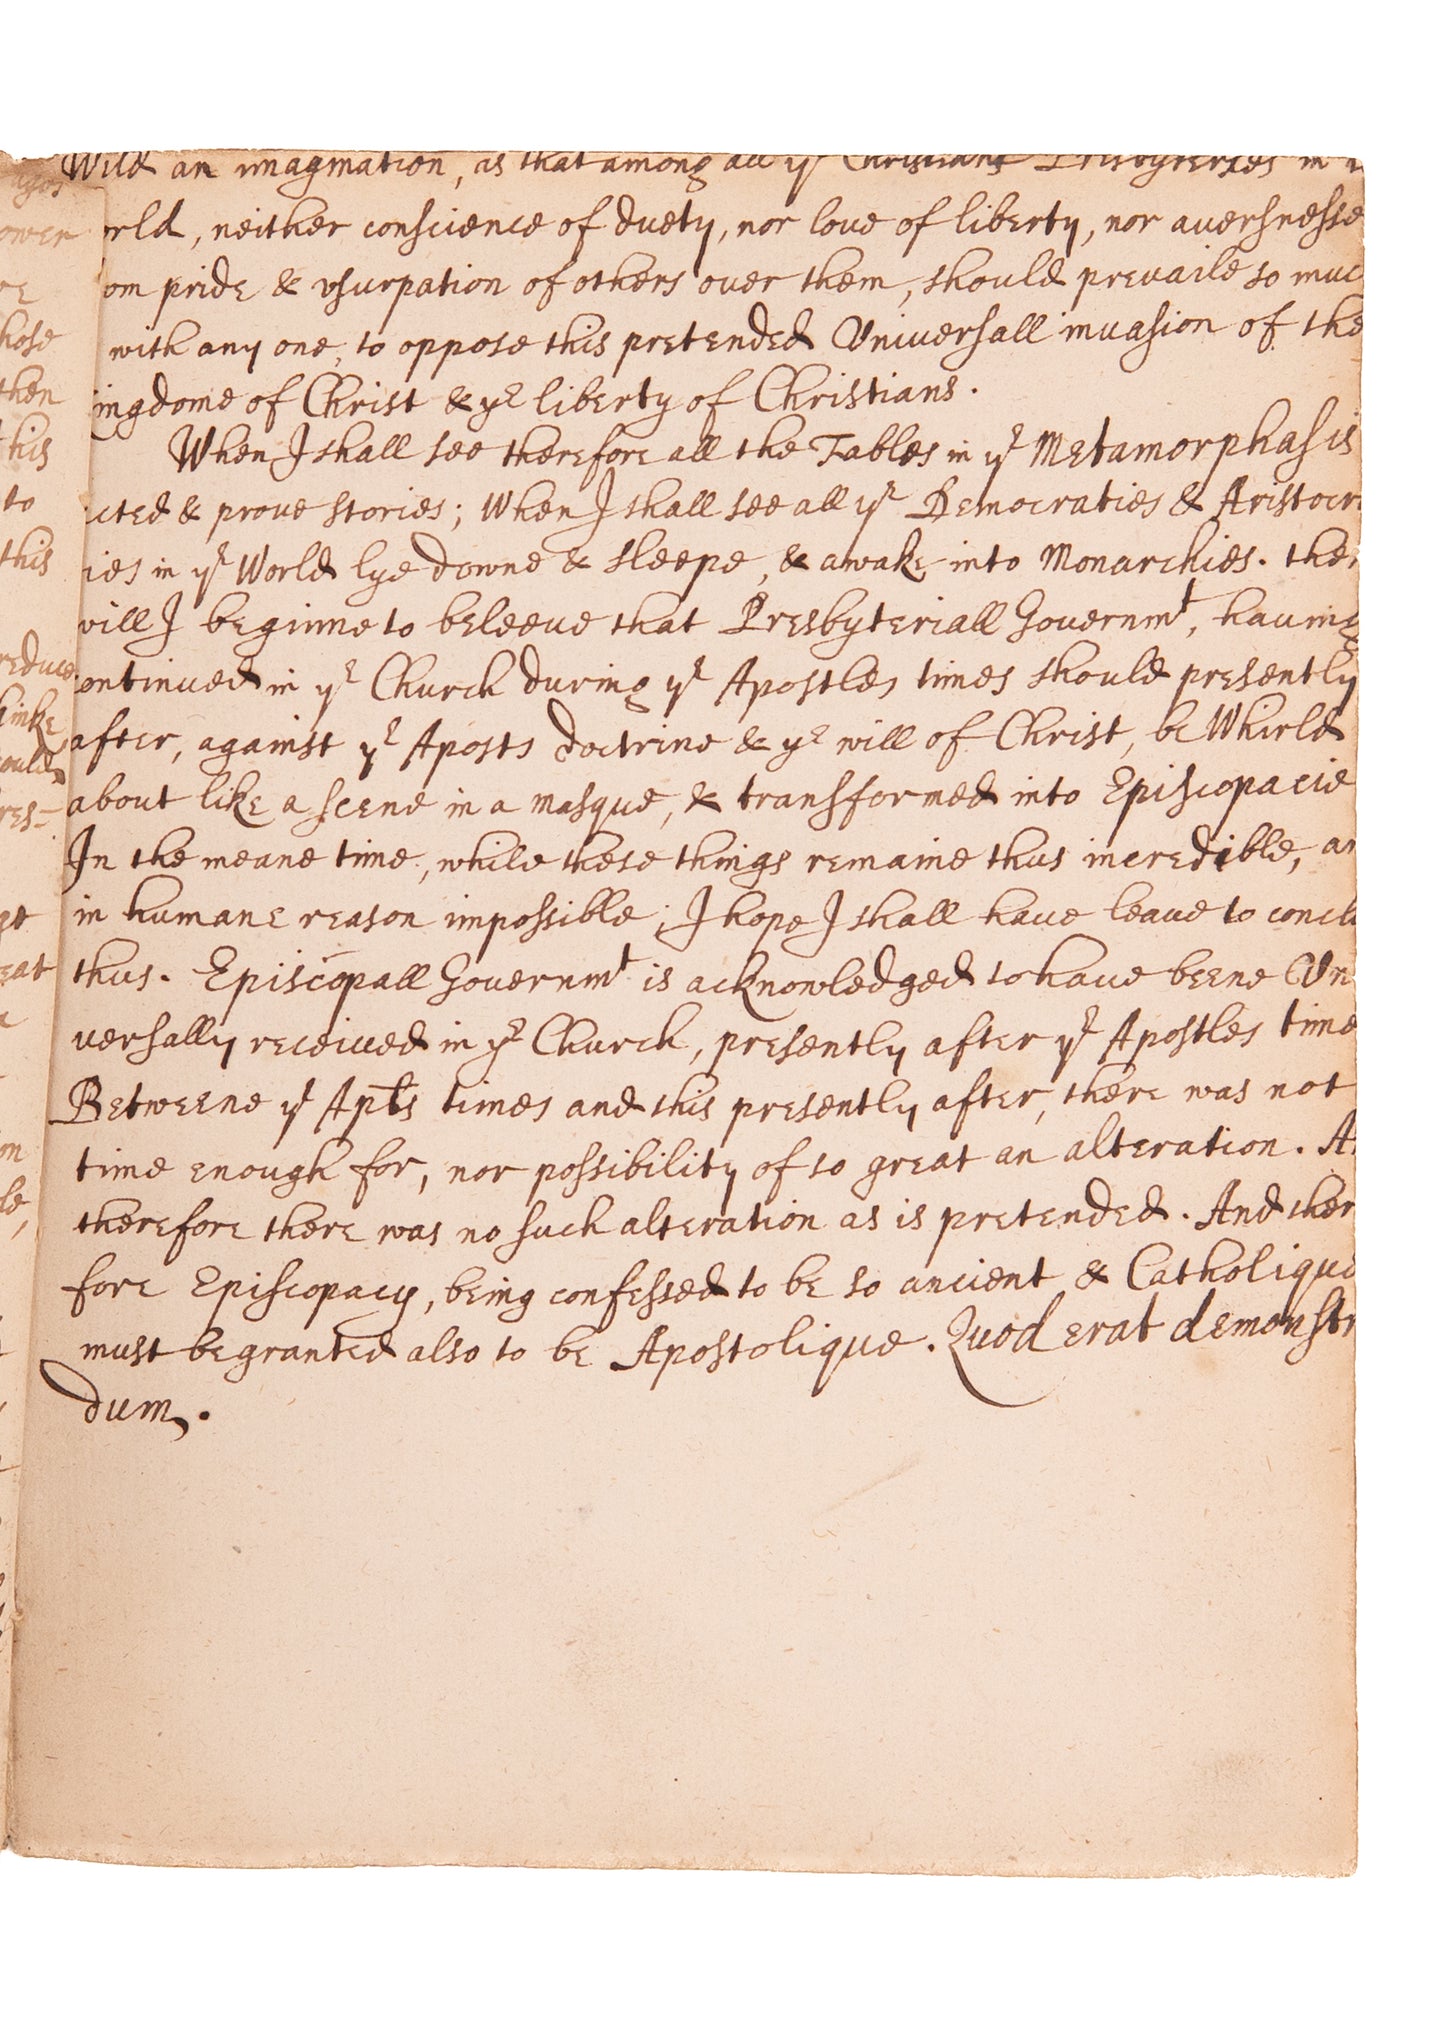 Wild an imagination, as that among all yͤ Christians Presbyteries in
orld, neither conscience of duety, nor love of liberty, nor auersnesse
om pride & vsurpation of others ouer them, should prevaile so muc
with any one, to oppose this pretended Vniuersall inuasion of the
ingdome of Christ & yͤ liberty of Christians.
When I shall see therefore all the Fables in yͤ Metamorphasis
cted & proue stories; When I shall see all yͤ Democraties & Aristocr
ies in yͤ World lye downe & sleepe, & awake into Monarchies. then
will I beginne to beleeue that Presbyteriall Gouernmᵗ, hauing
continued in yͤ Church during yͤ Apostles times should presently
after, against yͤ Aposts doctrine & yͤ will of Christ, be Whirld
about like a scene in a masque, & transformed into Episcopacie
In the meane time, while these things remaine thus incredible, an
in humane reason impossible; I hope I shall haue leaue to conclu
thus. Episcopall Gouernmᵗ is acknowledged to haue beene Vn
uersally receiued in yͤ Church, presently after yͤ Apostles time
Betweene yͤ Apts times and this presently after, there was not
time enough for, nor possibility of so great an alteration. A
therefore there was no such alteration as is pretended. And ther
fore Episcopacy, being confessed to be so ancient & Catholique
must be granted also to be Apostolique. Quod erat demonstr
dum.
ower
re
hose
then
this
to
this
reduce
hinke
ould
res=
ge
eat
on
le,